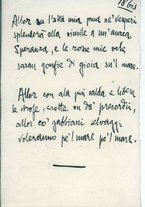 Allor su l'alta mia prua ne' vesperi
splenderà alla simile a un'aurea
Speranza, e le rosse mie vele
saran gonfie di gioia su'l mare.
Allor con ala più valida e libere
le strofe, erotte da da' precordii,
allor co' gabbiani selvaggi
voleranno pe'l mare pe'l mare!